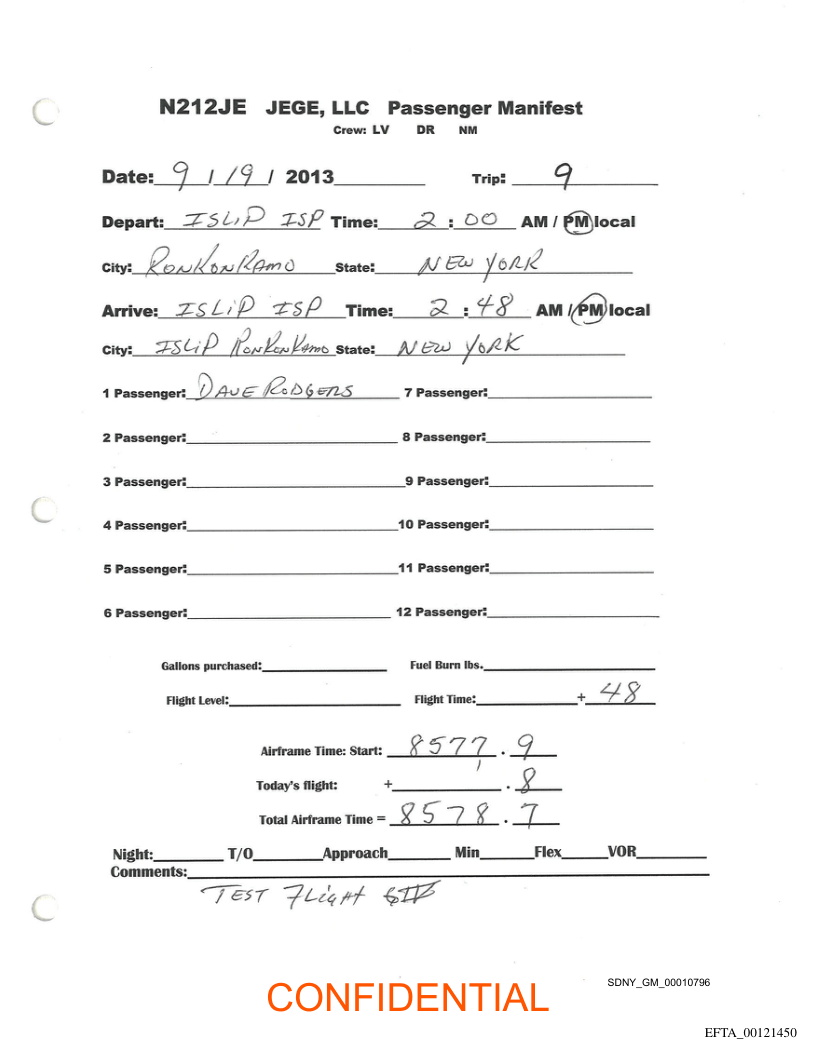 N212JE JEGE, LLC Passenger Manifest
Crew: LV DR NM
Date: 9 / 19 / 2013 Trip: 9
Depart: ISLIP ISP Time: 2 : 00 AM / PM local
City: RONKONKAMO State: NEW YORK
Arrive: ISLIP ISP Time: 2 : 48 AM / PM local
City: ISLIP RONKONKAMO State: NEW YORK
1 Passenger: DAVE RODGERS 7 Passenger:
2 Passenger: 8 Passenger:
3 Passenger: 9 Passenger:
4 Passenger: 10 Passenger:
5 Passenger: 11 Passenger:
6 Passenger: 12 Passenger:
Gallons purchased: Fuel Burn lbs.
Flight Level: Flight Time: + 48
Airframe Time: Start: 8577 . 9
Today's flight: + . 8
Total Airframe Time = 8578 . 7
Night: T/O Approach Min Flex VOR
Comments:
TEST FLigHT GIV
SDNY_GM_00010796
CONFIDENTIAL
EFTA_00121450